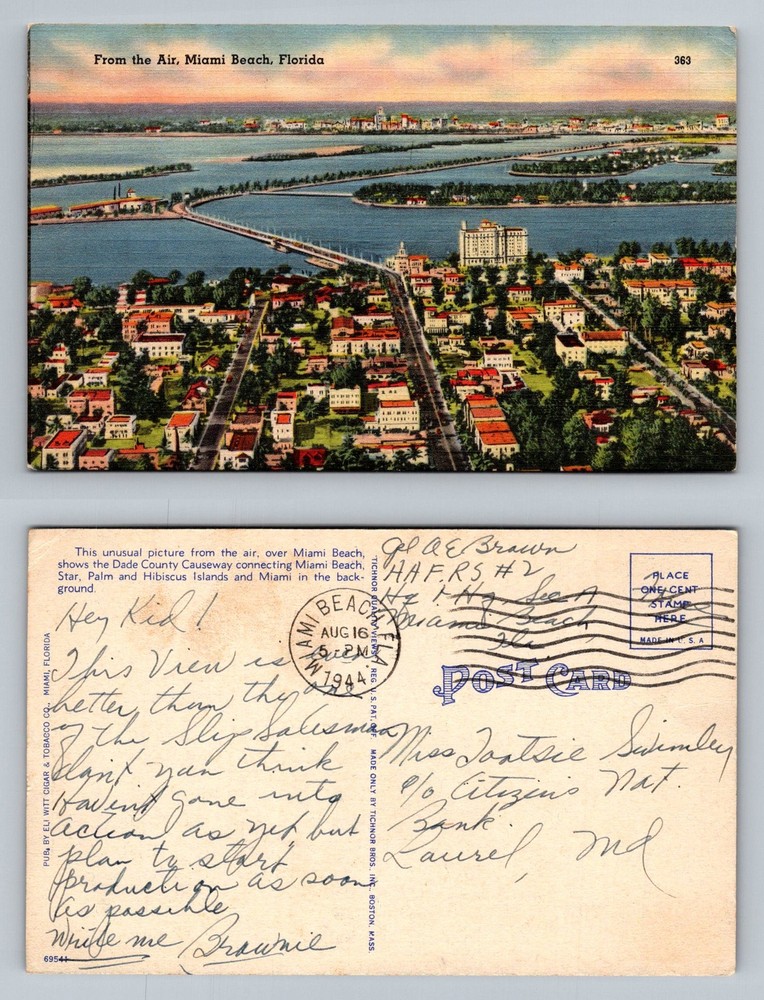 From the Air, Miami Beach, Florida
363
This unusual picture from the air, over Miami Beach,
shows the Dade County Causeway connecting Miami Beach,
Star, Palm and Hibiscus Islands and Miami in the back-
ground.
Hey Kid!
This View is
better than the one
of the Slip Salesman
don't you think
Haven't gone into
action as yet but
plan to start
production as soon
as possible
Write me Brownie
PUB. BY ELI WITT CIGAR & TOBACCO CO., MIAMI, FLORIDA
69541
MIAMI BEACH, FLA.
AUG 16
5 - PM
1944
TICHNOR QUALITY VIEWS, REG. U.S. PAT. OFF. MADE ONLY BY TICHNOR BROS. INC., BOSTON, MASS.
A E Brown
HAFRS #2
Hq & Hq Sec A
Miami Beach
Fla.
PLACE
ONE CENT
STAMP
HERE
MADE IN U.S.A
POST CARD
Miss Tootsie Swimley
c/o Citizens Nat.
Bank
Laurel, Md